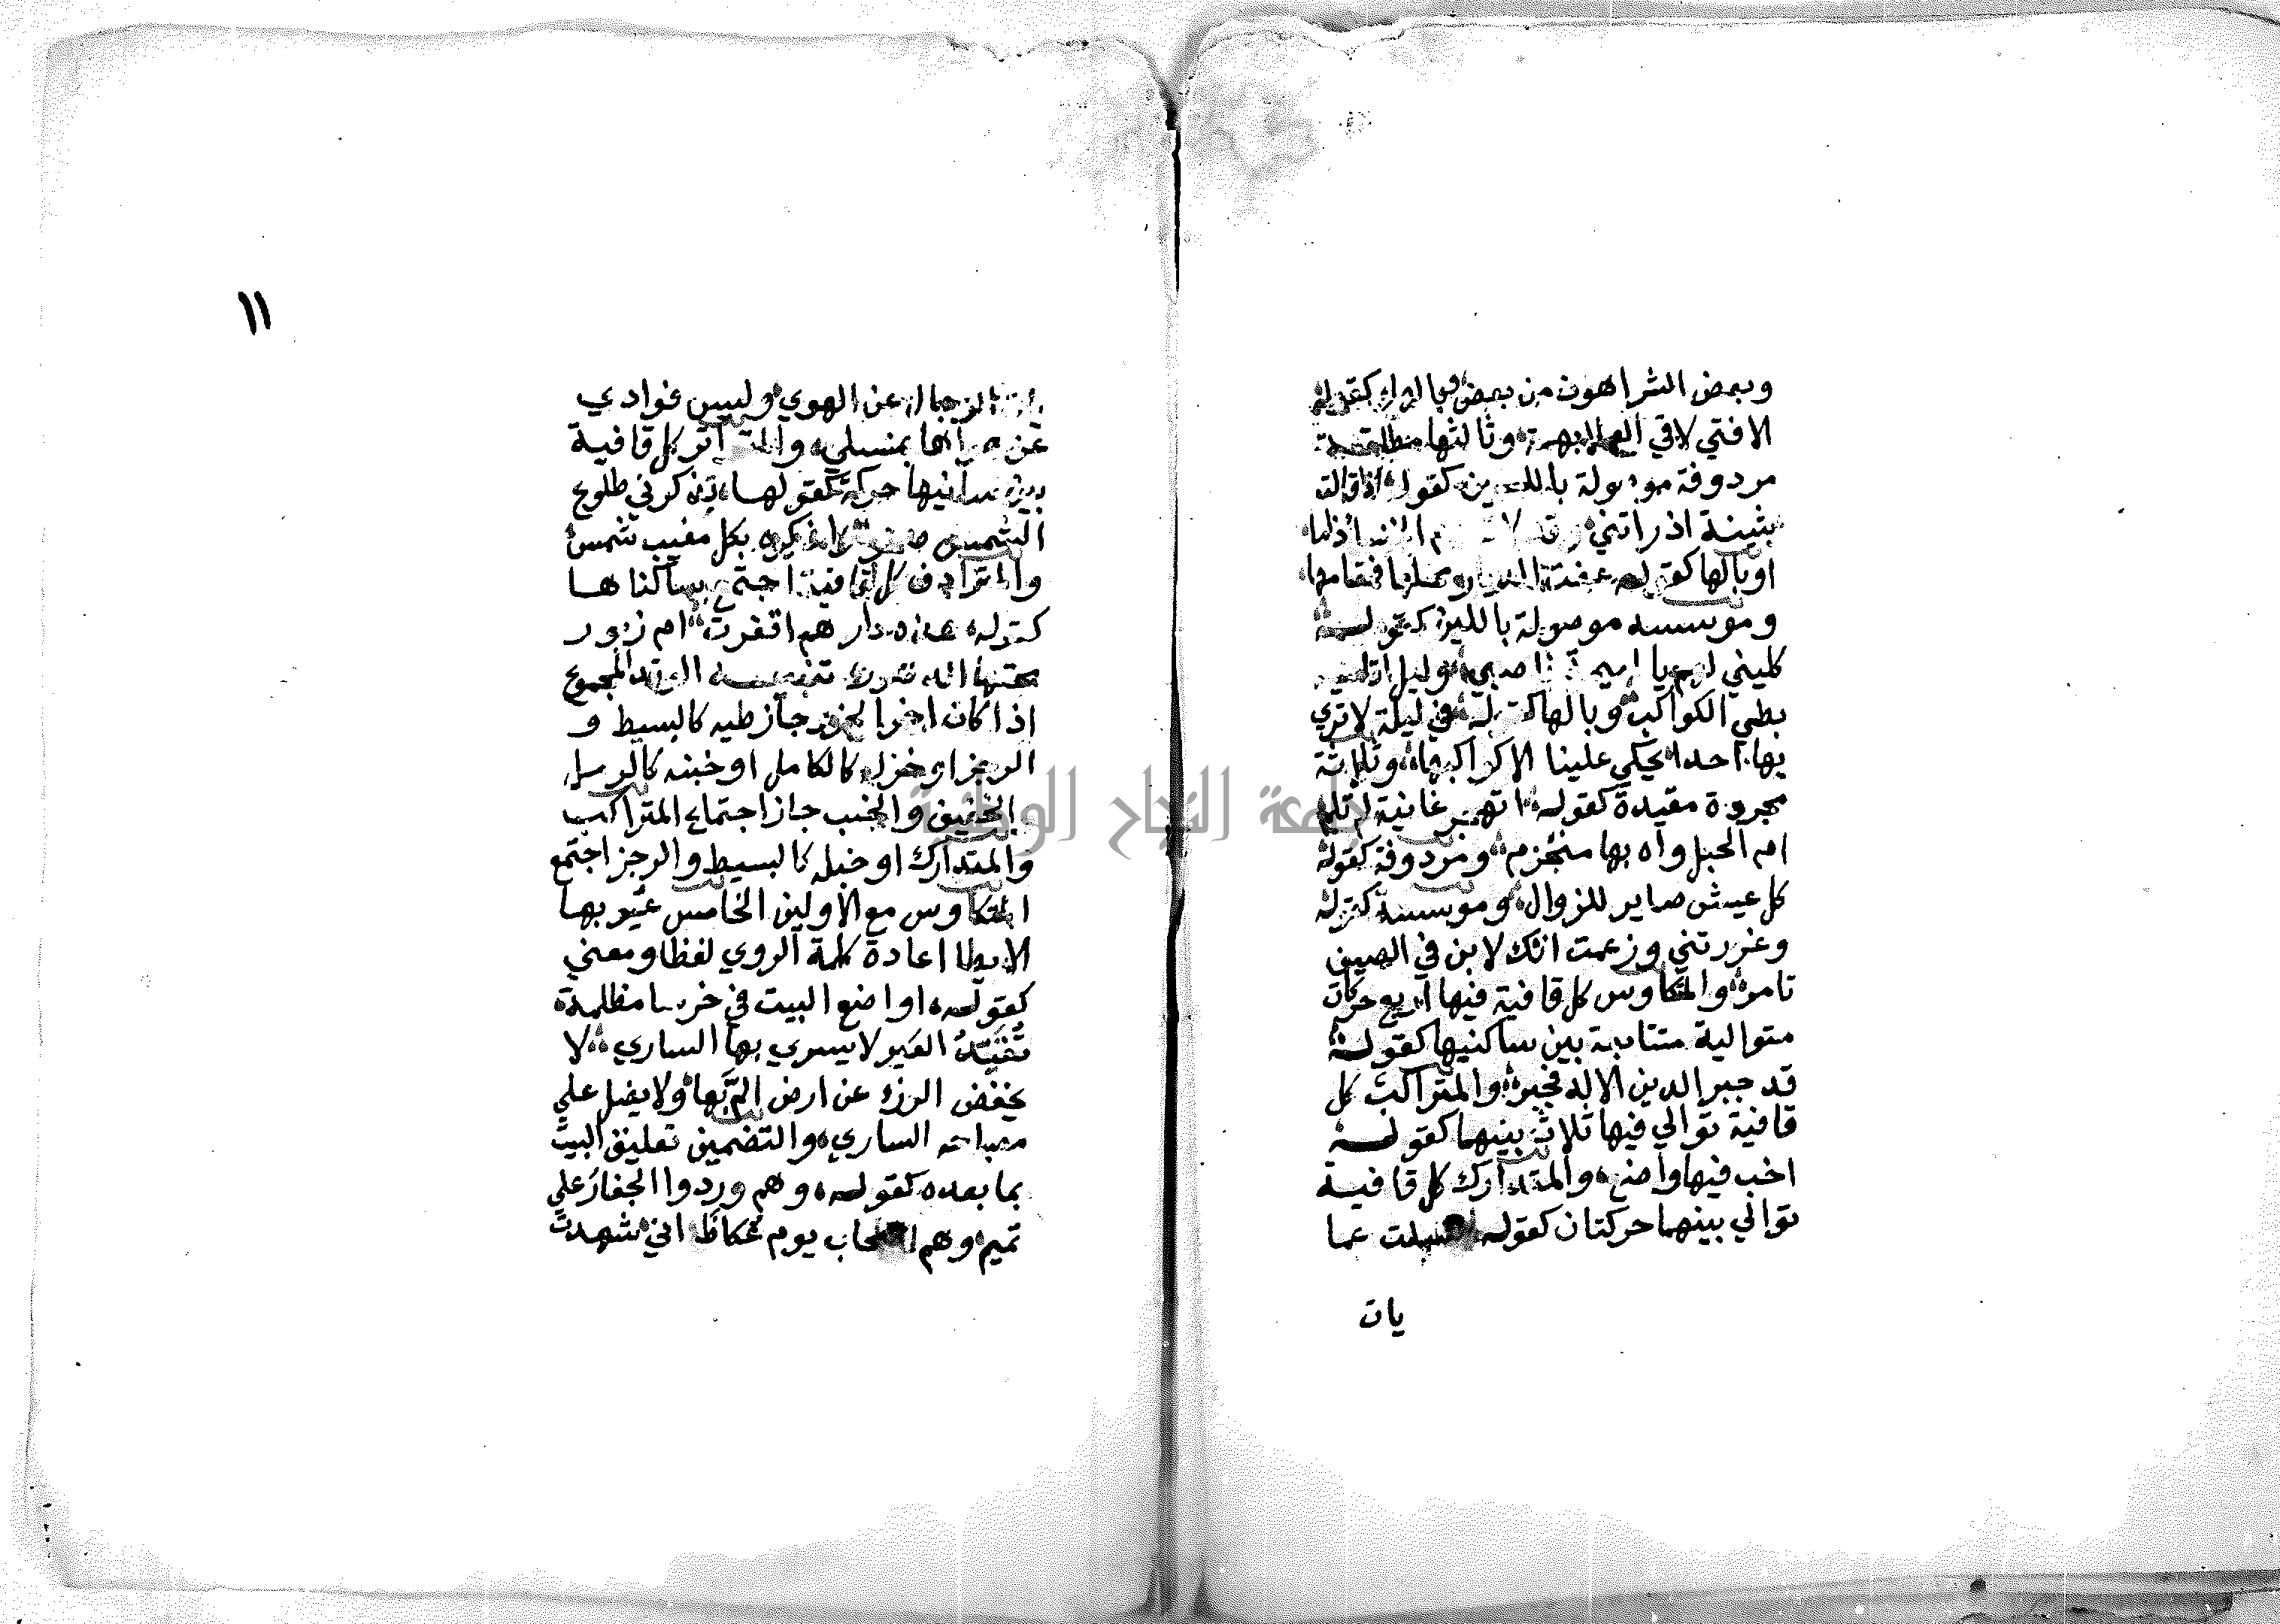 وبعض الشر اهون من بعض وبالواو كقوله
الا فتي لاقي العلا بهمة وثالثها مطلقة
مردوفة موصولة باللين كقوله اذ قالت
بثينة اذ راتني وقد لا
او بالها كقوله عفت الديار محلها فمقامها
وموسسه موصولة باللين كقوله
كليني لهم يا اميمة ناصبي وليل اقاسيه
بطي الكواكب وبالها كقوله في ليلة لا تري
بها احدا يحكي علينا الا كواكبها وثلاثة
مجردة مقيدة كقوله اتهجر غانية ام تلم
ام الحبل واه بها منجزم ومردوفة كقوله
كل عيش صاير للزوال وموسسة كقوله
وغررتني وزعمت انك لابن في الصيف
تامر والمتكاوس كل قافية فيها اربع حركات
متوالية متتابعة بين ساكنيها كقوله
قد جبر الدين الاله فجبر والمتراكب كل
قافية توالي فيها ثلاث بينهما كقوله
اخب فيها واضع والمتدارك كل قافية
توالي بينهما حركتان كقوله تسلت عما
يات
يات الرجال عن الهوي وليس فوادي
عن هواها بمنسلي والمتواتر كل قافية
بين ساكنيها حركة كقولها يذكرني طلوع
الشمس صخرا واذكره بكل مغيب شمس
والمترادف كل قافية اجتمع ساكناها
كقوله هذه دارهم اقفرت ام زبور
محتها الدهور تنبيه الوتد المجموع
اذا كان اخر الجزء جاز طيه كالبسيط و
الرجز او خزله كالكامل او خبنه كالرمل
الخفيف والخبب جاز اجتماع المتراكب
والمتدارك او خبله كالبسيط والرجز اجتمع
المتكاوس مع الاولين الخامس عيوبها
الايطا اعادة كلمة الروي لفظا ومعني
كقوله او اضع البيت في خرسا مظلمة
تقيد العير لا يسري بها الساري لا
يخفض الرزء عن ارض الم بها ولا يضل علي
مصباحه الساري والتضمين تعليق البيت
بما بعده كقوله وهم وردوا الجفار علي
تميم وهم اصحاب يوم عكاظ اني شهدت
١١
جامعة النجاح الوطنية